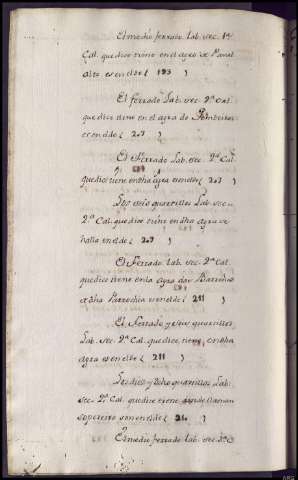 El medio ferrado lab. sec. 1ª
Cal. que dice tiene en el agro de
alto es en el de ( 193 )
El ferrado Lab. sec. 2ª Cal.
que dice tiene en el agra do
es en el de ( 207 )
El Ferrado Lab. sec. 2ª Cal.
que dice tiene en dha agra es en el de ( 207 )
Los seis quarrillos Lab. sec.
2ª Cal. que dice tiene en dha agra se
halla en el de ( 207 )
El Ferrado lab. sec. 2ª Cal.
que dice tiene en la agra das Barreiras
de dha Parrochia es en el de ( 211 )
El Ferrado y seis quarrillos
Lab. sec. 2ª Cal. que dice tiene en dha
agra es en el de ( 211 )
Los dies y ocho quarrillos Lab.
sec. 2ª Cal. que dice tiene donde llaman
son en el de ( )
El medio ferrado lab. sec.